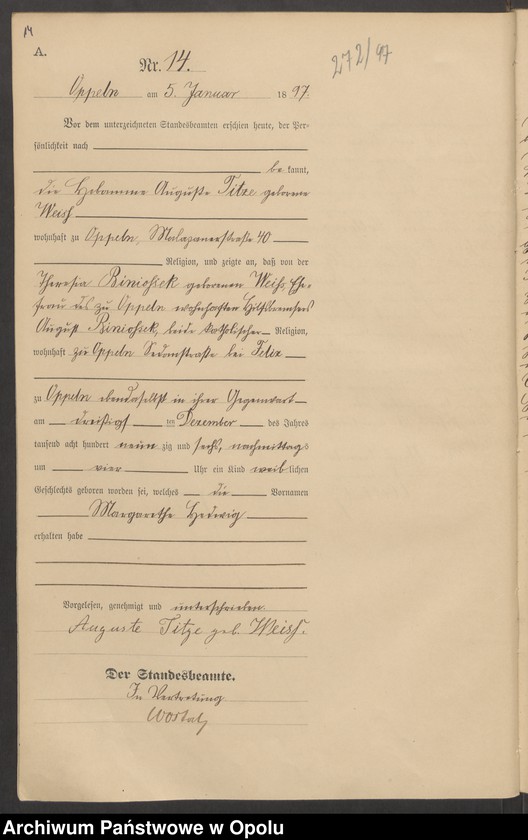 14
A.
Nr. 14.
272/97
Oppeln am 5. Januar 1897.
Vor dem unterzeichneten Standesbeamten erschien heute, der Per-
sönlichkeit nach
bekannt,
die Hebamme Auguste Titze geborene
Weiß
wohnhaft zu Oppeln, Malapanerstraße 40
Religion, und zeigte an, daß von der
Theresia Biniossek geborenen Weiß, Ehe-
frau des zu Oppeln wohnhaften Hilfsbremsers
August Biniossek, beide katholischer Religion,
wohnhaft zu Oppeln Sedanstraße bei
zu Oppeln ebendaselbst in ihrer Gegenwart
am dreißigsten Dezember des Jahres
tausend acht hundert neunzig und sechs, nachmittags
um vier Uhr ein Kind weiblichen
Geschlechts geboren worden sei, welches die Vornamen
Margarethe Hedwig
erhalten habe
Vorgelesen, genehmigt und unterschrieben.
Auguste Titze geb. Weiss.
Der Standesbeamte.
In Vertretung
Archiwum Państwowe w Opolu